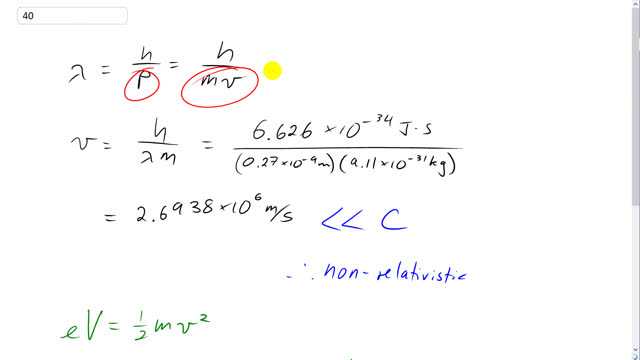 40
λ = h/p = h/mv
v = h/λm = 6.626 × 10⁻³⁴ J·s / (0.27 × 10⁻⁹ m)(9.11 × 10⁻³¹ kg)
= 2.6938 × 10⁶ m/s << C
∴ non-relativistic
eV = 1/2 mv²